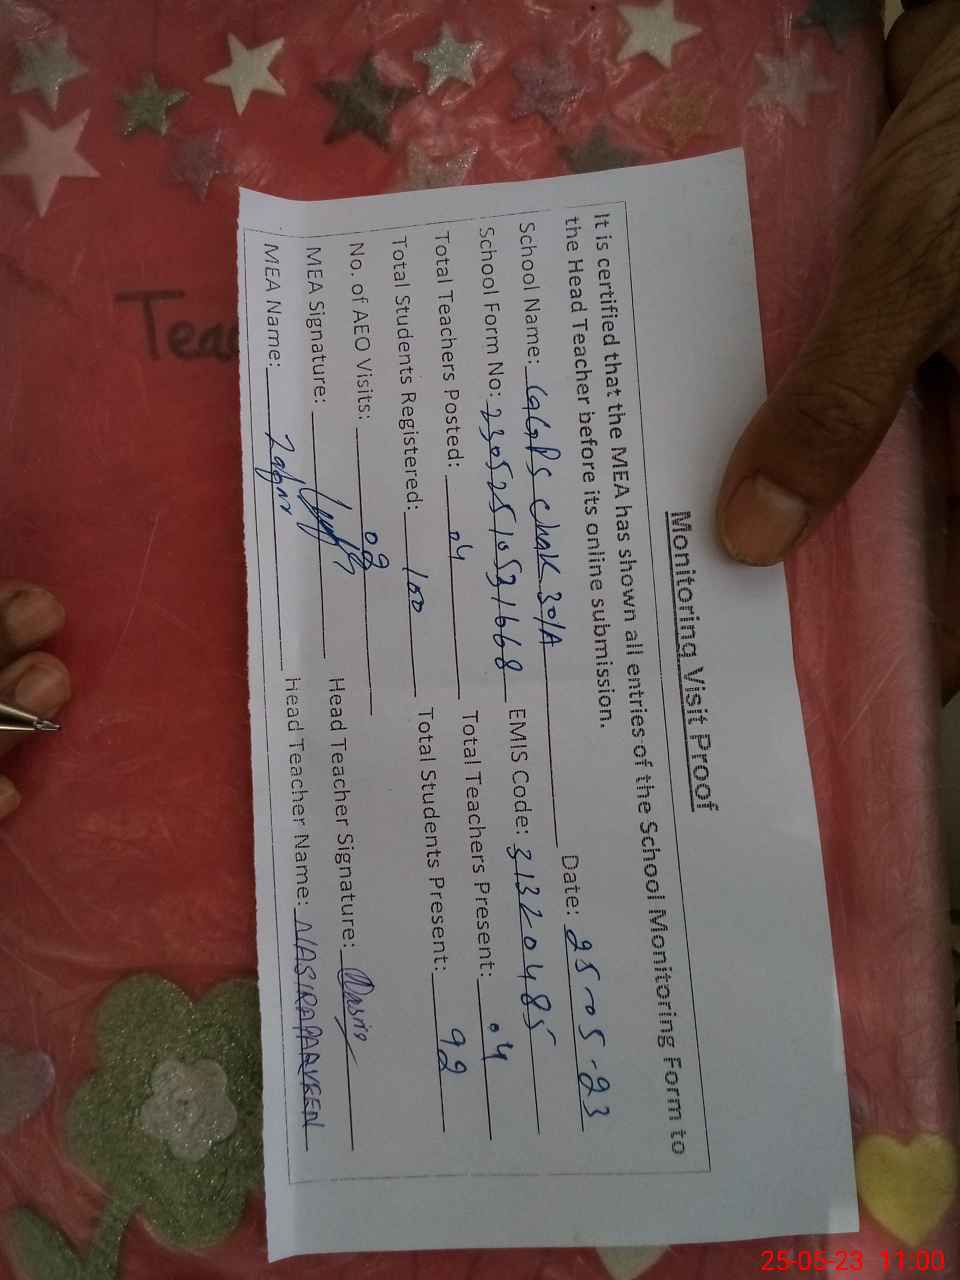 Monitoring Visit Proof
It is certified that the MEA has shown all entries of the School Monitoring Form to
the Head Teacher before its online submission.
School Name: GGPS Chak 30/A Date: 25-05-23
School Form No: 23052510531668 EMIS Code: 31320485
Total Teachers Posted: 04 Total Teachers Present: 04
Total Students Registered: 100 Total Students Present: 92
No. of AEO Visits: 02
MEA Signature: Head Teacher Signature:
MEA Name: Head Teacher Name: NASIRA PARVEEN
Teac
25-05-23 11:00